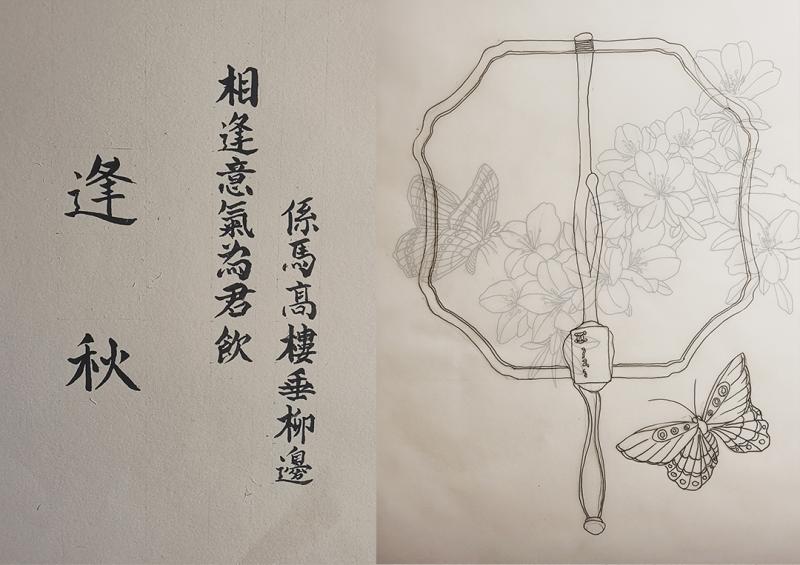 逢秋
相逢意氣為君飲
係馬高樓垂柳邊